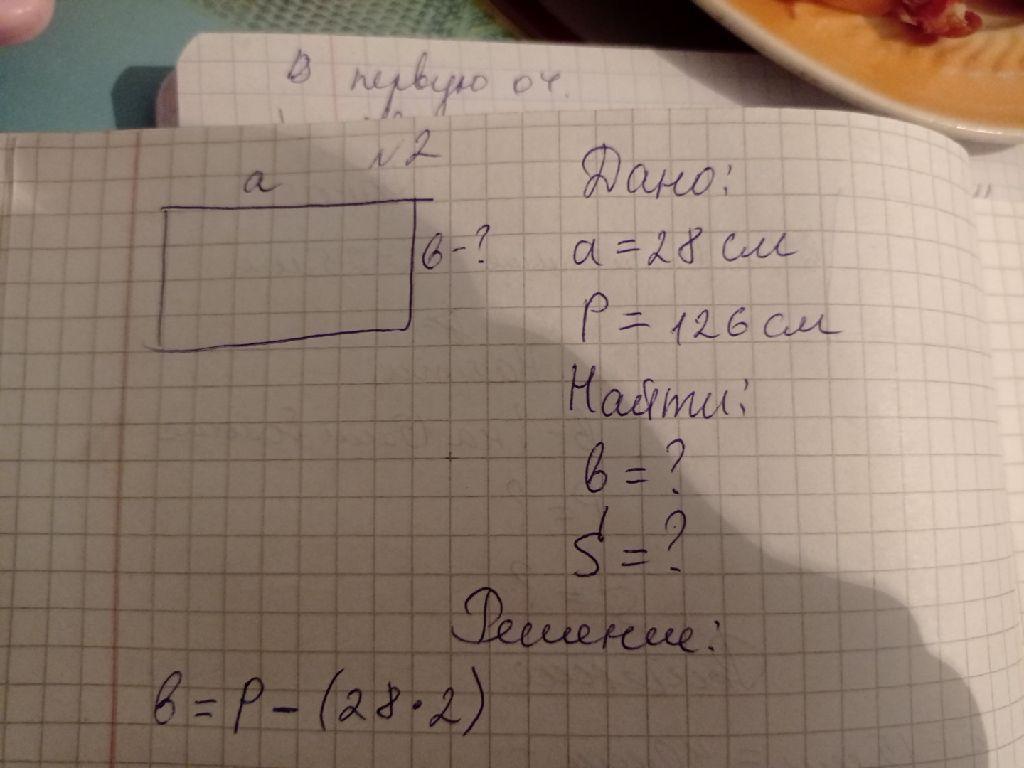 В первую оч.
№2
a
в-?
Дано:
a = 28 см
P = 126 см
Найти:
в = ?
S = ?
Решение:
в = P - (28 · 2)